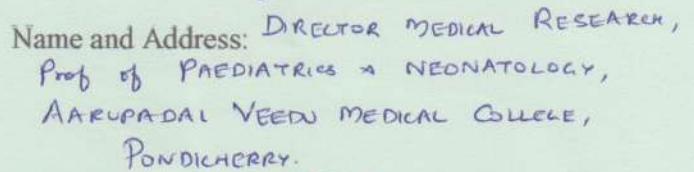 Name and Address: DIRECTOR MEDICAL RESEARCH,
Prof of PAEDIATRICS & NEONATOLOGY,
AARUPADAI VEEDU MEDICAL COLLEGE,
PONDICHERRY.